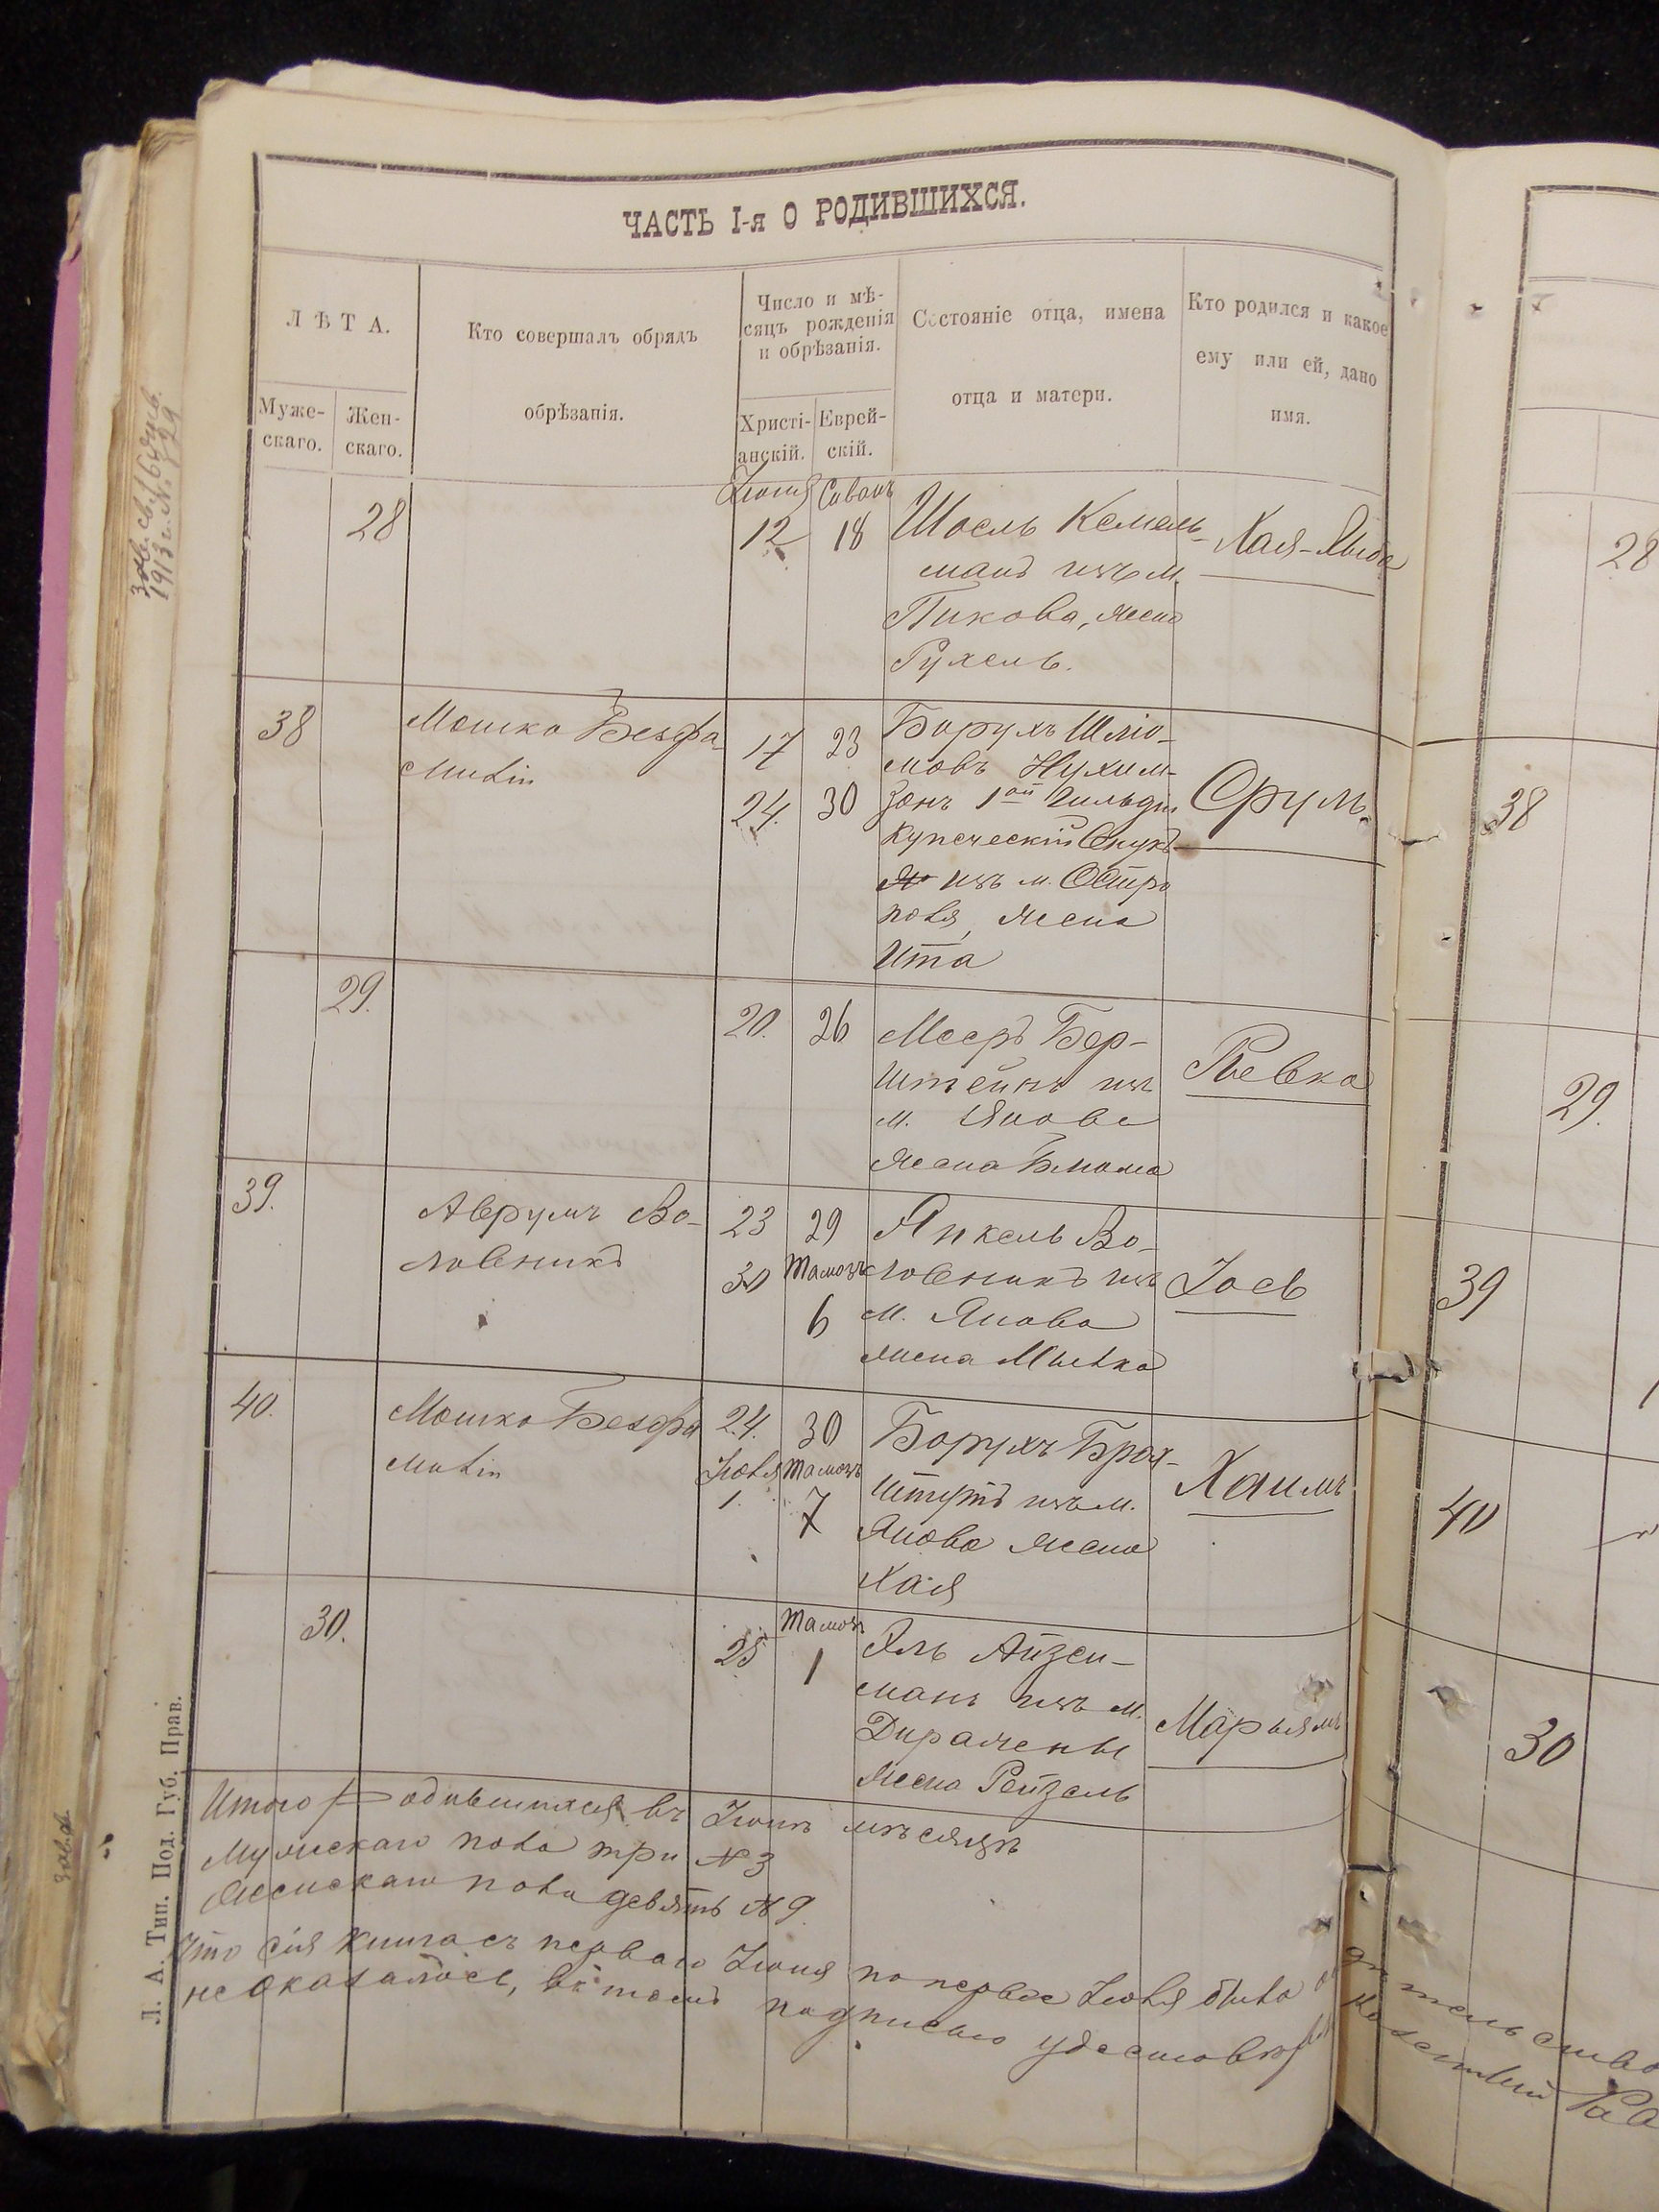 ЧАСТЬ I-я О РОДИВШИХСЯ.
ЛѢТА.
Муже-
скаго.
Жен-
скаго.
Кто совершалъ обрядъ
обрѣзанія.
Число и мѣ-
сяцъ рожденія
и обрѣзанія.
Христі-
анскій.
Еврей-
скій.
Состояніе отца, имена
отца и матери.
Кто родился и какое
ему или ей, дано
имя.
28
Іюня
12
Сиванъ
18
Шоель Кемель-
манъ изъ м.
Пикова, жена
Рухель.
Хая-Лыба
38
Мошко Безфа
милін
17
24.
23
30
Борухъ Шліо-
мовъ Нухим-
зонъ 1ой Гильдіи
Купеческій Внукъ
изъ м. Остро
поля, жена
Ита
Срулъ.
29.
20.
26
Мееръ Бер-
штейнъ изъ
м. Янова
жена Блюма
Ривка
39.
Аврумъ Во-
ловникъ
23
30
29
Тамозъ
6
Янкель Во-
ловникъ изъ
м. Янова
жена Милка
Іось
40.
Мошко Безфа
милін
24.
Іюля
1.
30
Тамозъ
7
Борухъ Брон-
штейнъ изъ м.
Янова жена
Хая
Хаимъ
30.
25
Тамозъ
1
Эль Айзен-
манъ изъ м.
Диражены
жена Рейзель
Марьямъ
Итого родившихся въ Іюнѣ мѣсяцѣ
Мужескаго пола три № 3
Женскаго пола девять № 9.
Что сія книга съ перваго Іюня по первое Іюля была
не оказалось, въ томъ подписью удостовѣр
Л. А. Тип. Под. Губ. Прав.
28
38
29.
39
40
30